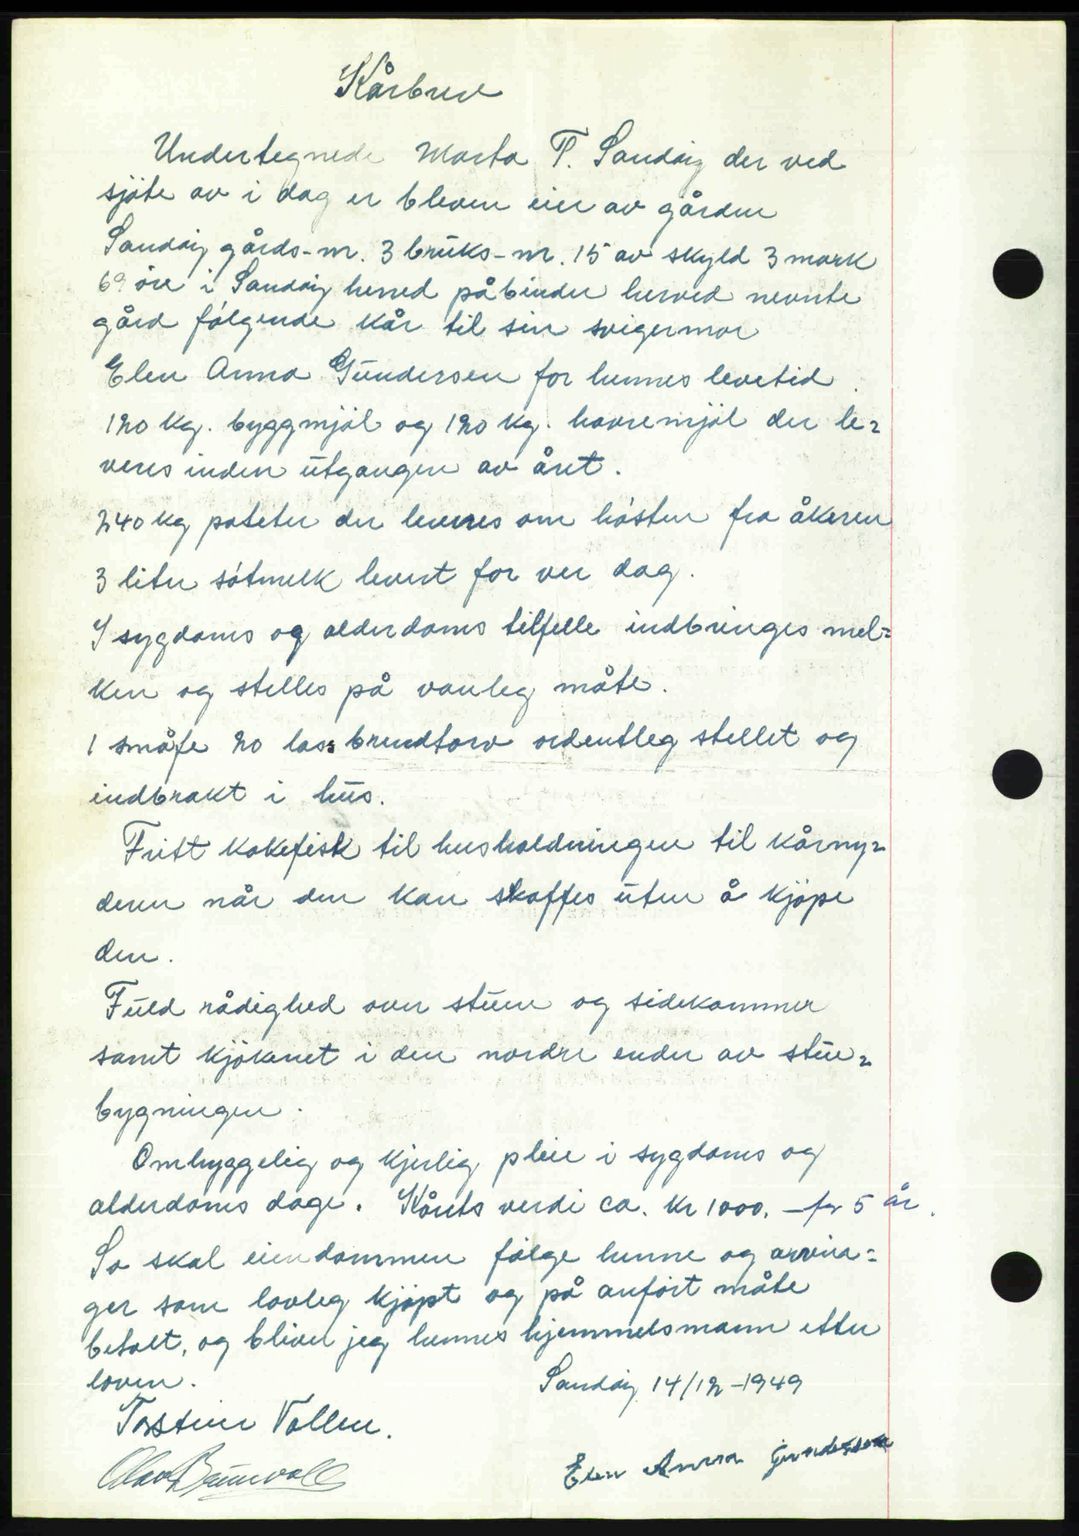 Kårbrev
Undertegnede Marta T. Sandøig der ved
sjöte av i dag er bleven eier av gården
Sandøig gårds-nr. 3 bruks-nr. 15 av skyld 3 mark
69 öre i Sandøig herred påbinder herved nevnte
gård følgende kår til sin svigermor
Elen Anna Gundersen for hennes levetid.
120 kg. byggmjöl og 120 kg. havremjöl der le=
veres inden utgangen av året.
240 kg poteter der leveres om høsten fra åkeren
3 liter søtmelk levert for ver dag.
I sygdoms og alderdoms tilfelle indbringes mel=
ken og stelles på vanleg måte.
1 småfe 20 lass brendtorv ordentleg stellet og
indbrakt i hus.
Fritt kokefisk til husholdningen til kårny=
deren når den kan skaffes uten å kjöpe
den.
Fuld rådighed over stuen og sidekammer
samt kjökenet i den nordre ender av stue=
bygningen.
Omhyggelig og kjerlig pleie i sygdoms og
alderdoms dage. Kårets verdi ca. kr 1000. - for 5 år.
So skal eiendommen følge henne og arvin=
ger som lovleg kjöpt og på anført måte
betalt, og bliver jeg hennes hjemmelsmann etter
loven.
Sandøig 14/12-1949
Torstein Vollen.
Olav Brunvoll
Elen Anna Gundersen